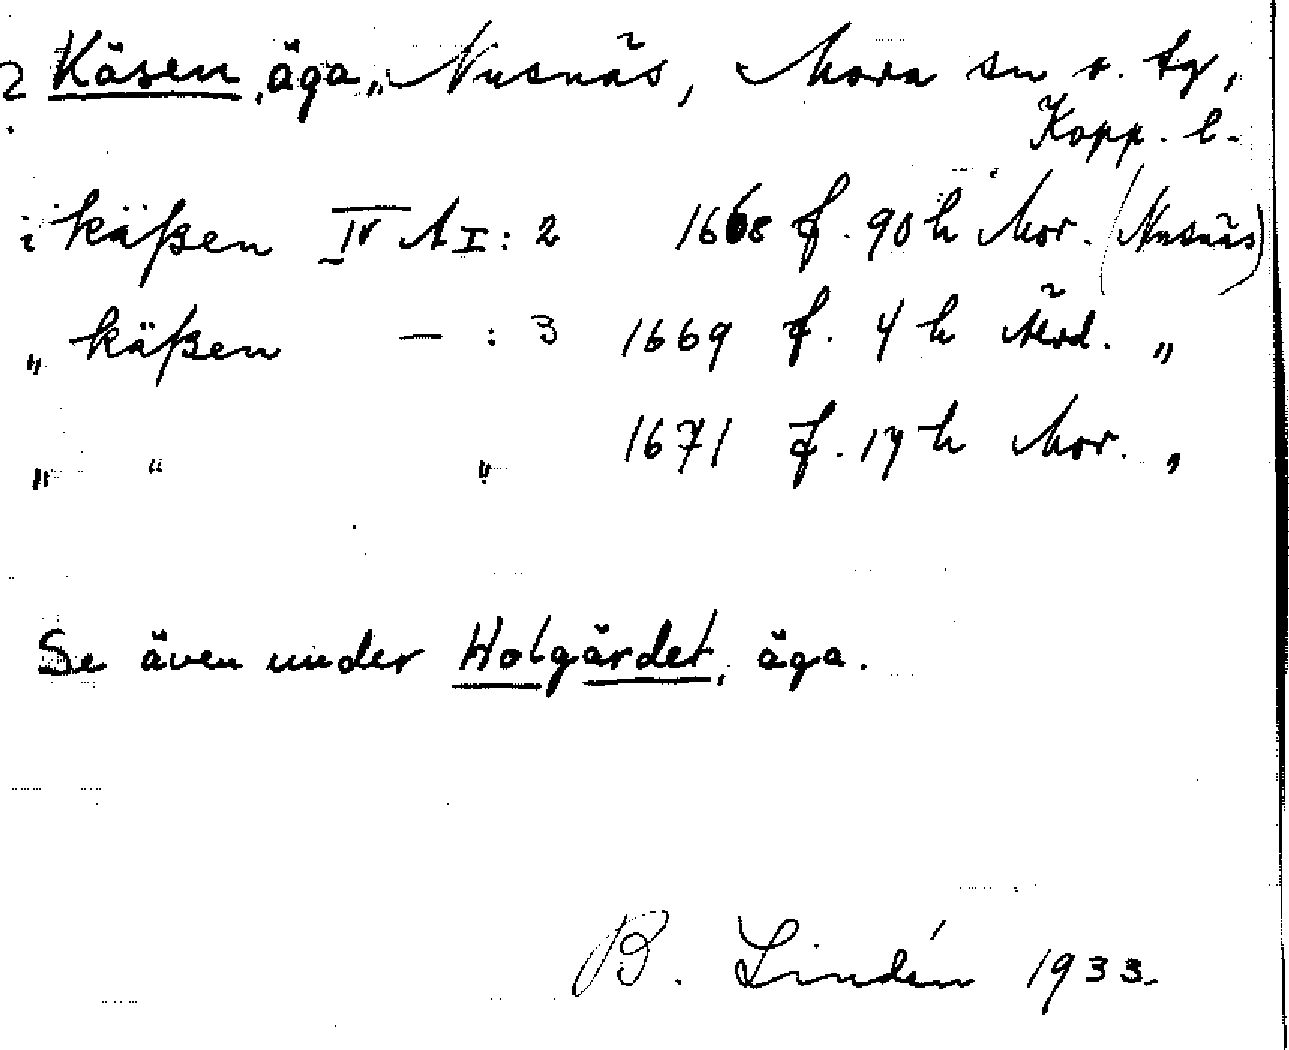 Käsen, äga, Nusnäs, Mora sn o. tg,
Kopp. l.
i käßen IV A I : 2 1668 f. 90 h Mor. (Nusnäs)
„ käßen — : 3 1669 f. 4 h „
„ “ „ 1671 f. 17 h Mor. „
Se även under Holgärdet, äga.
B. Lindén 1933.